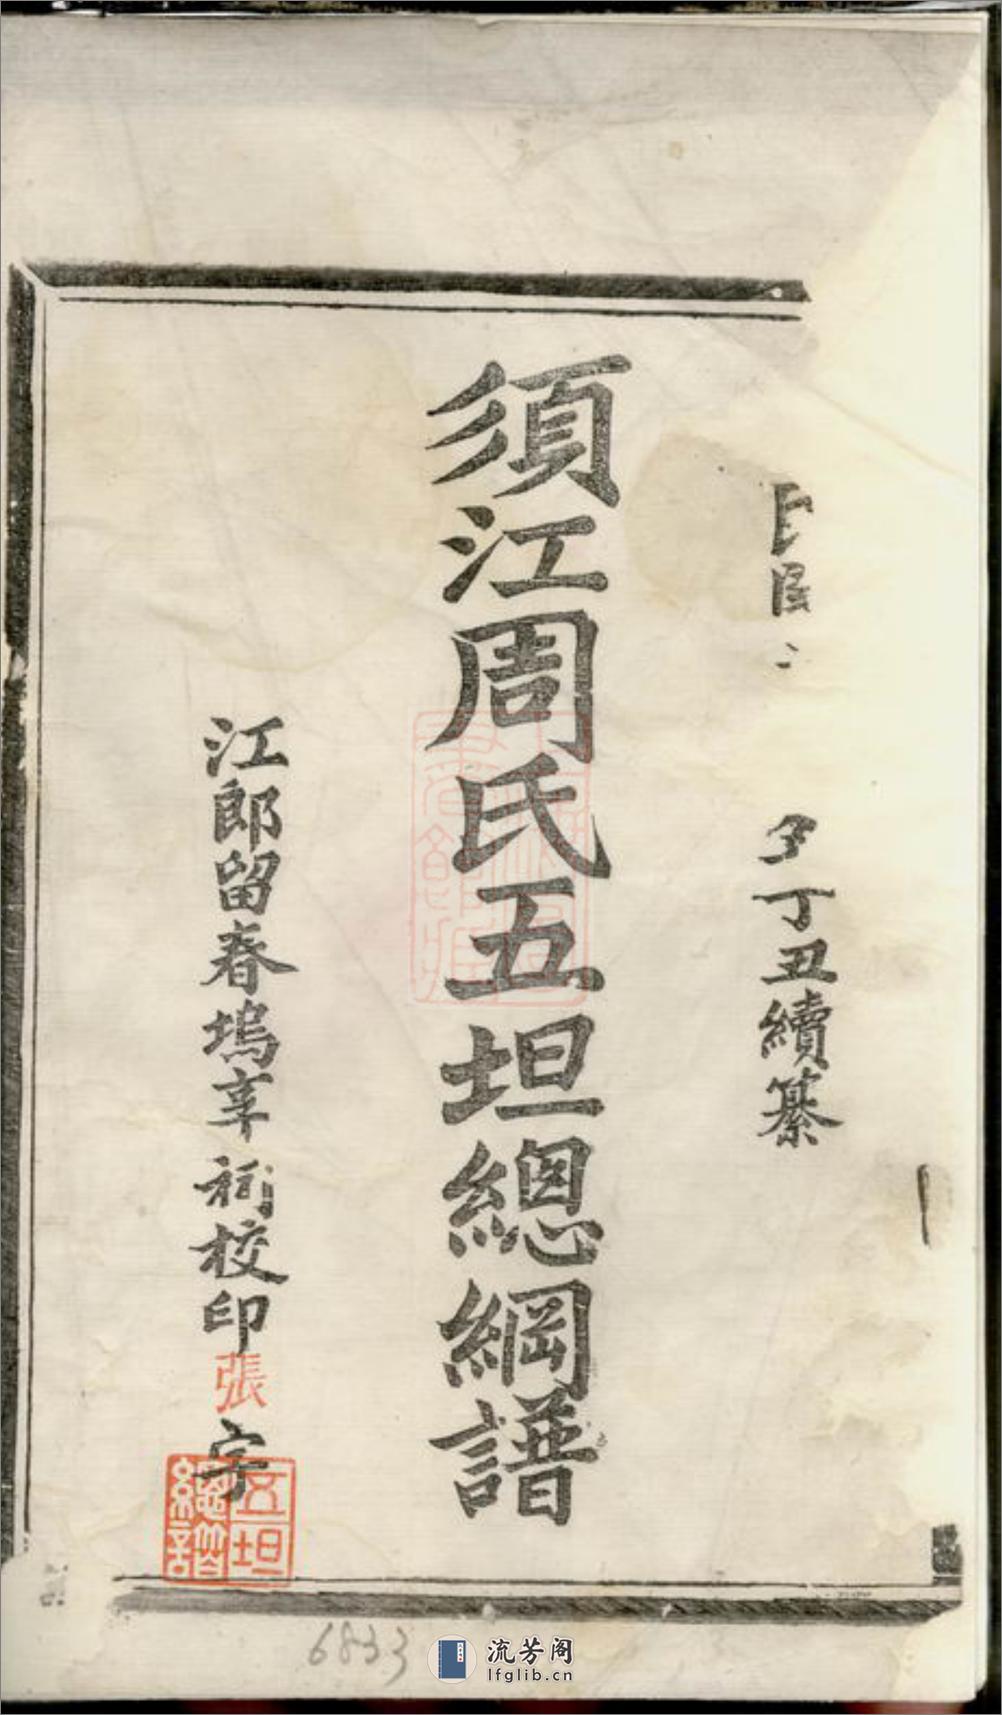 丁丑續纂
須江周氏五坦總綱譜
江郎留春塢辜祠校印
張
字
五坦總譜
6833
流芳阁
lfglib.cn